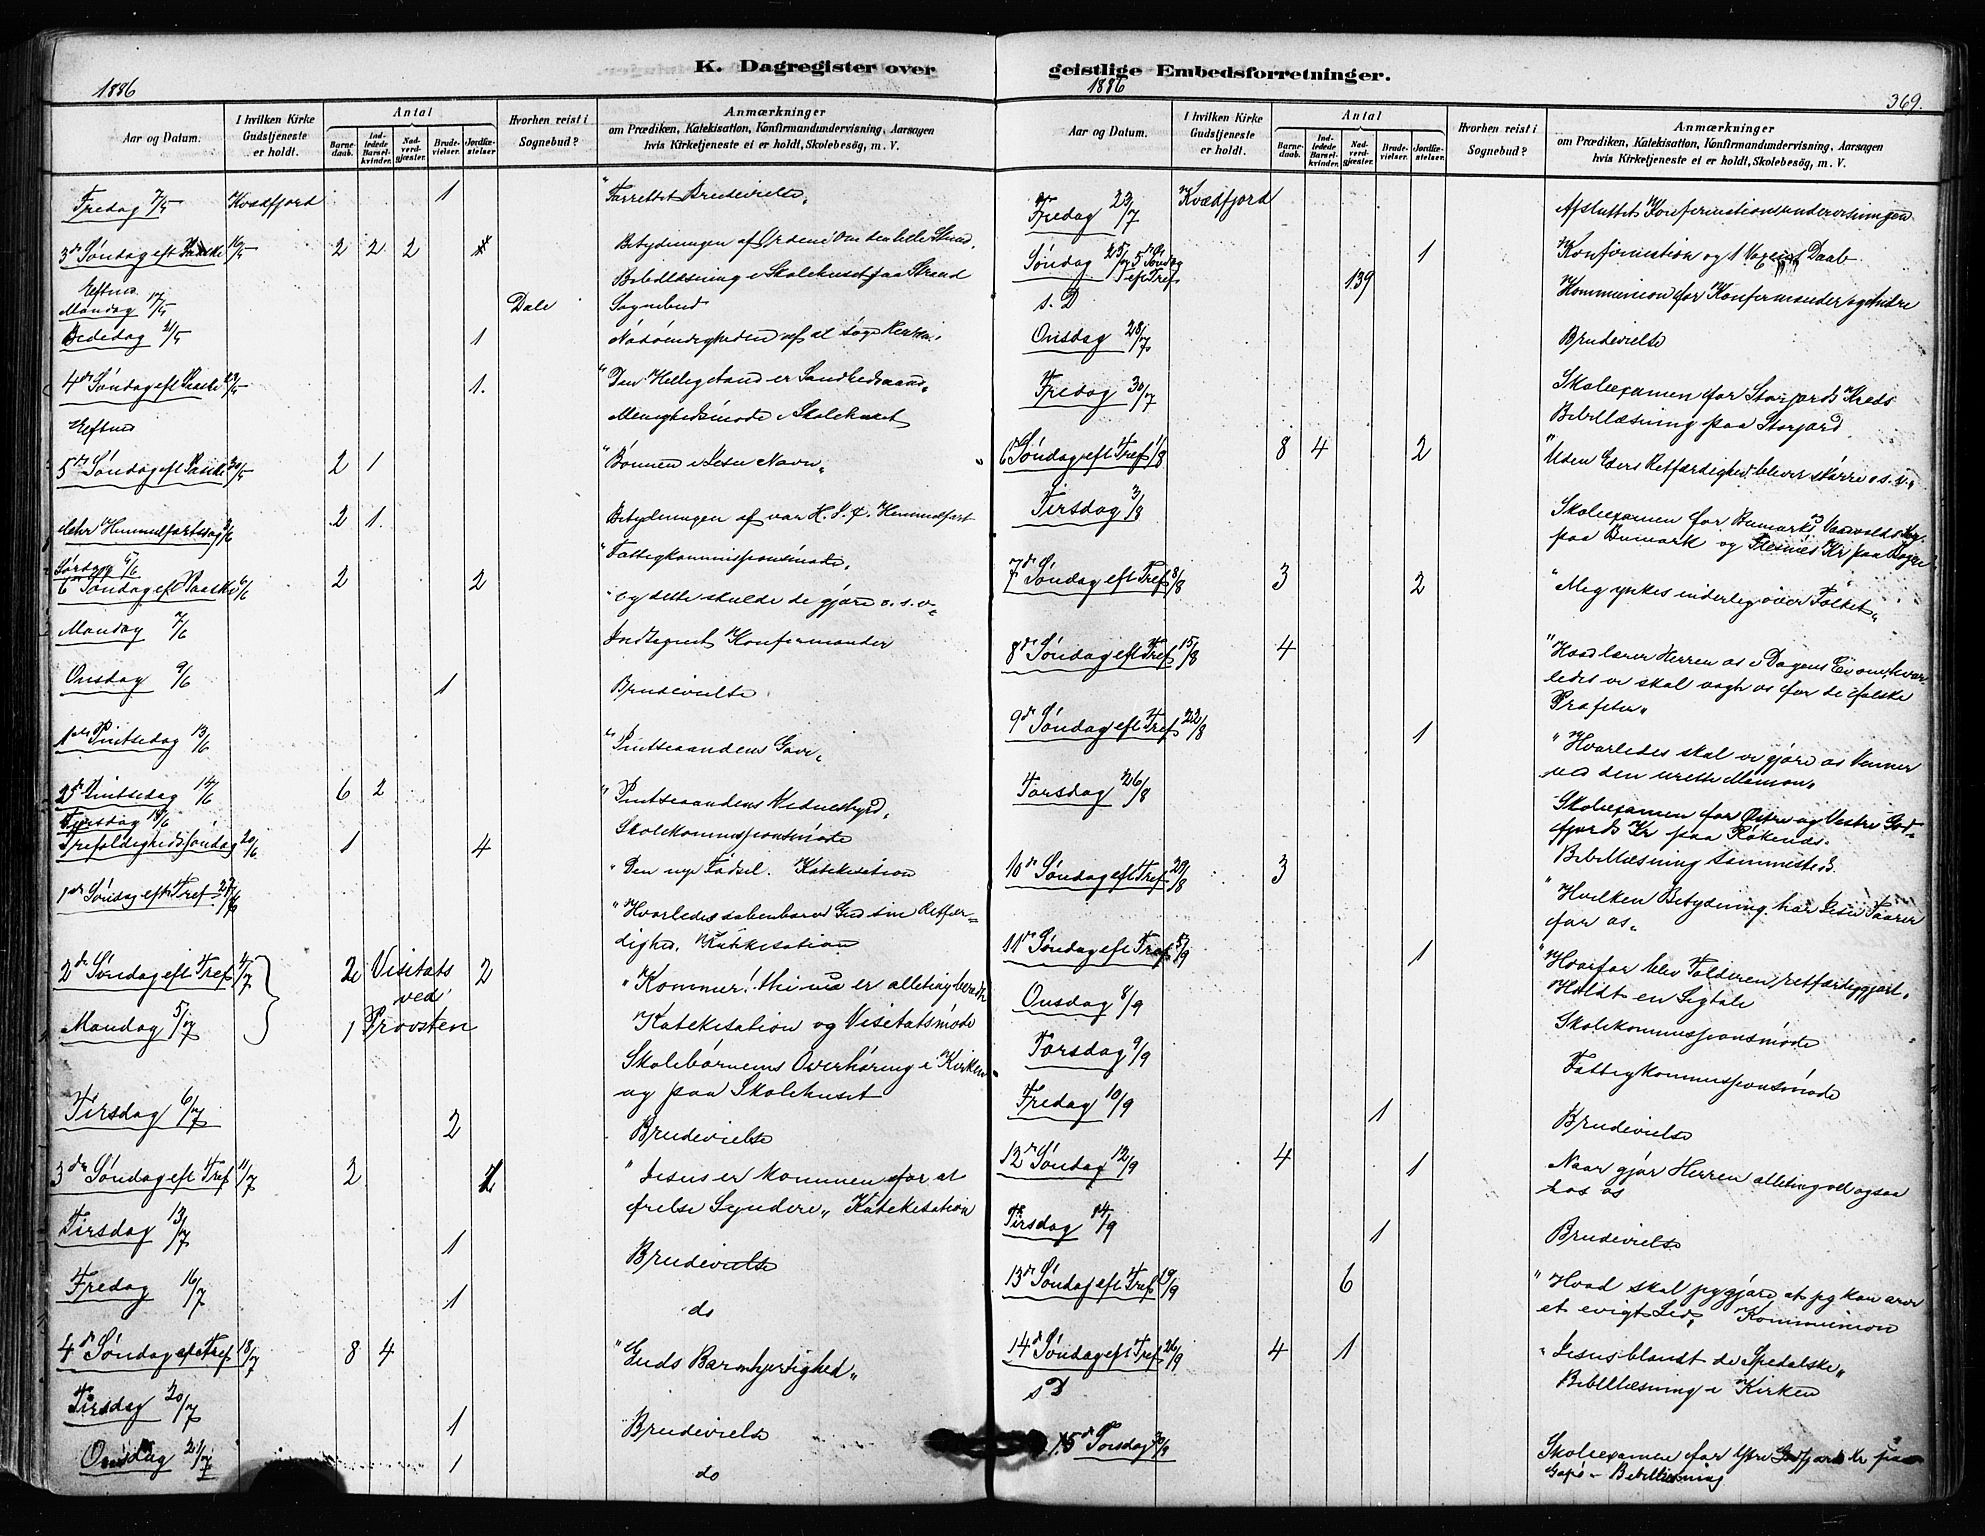 K. Dagregister over
1886
Aar og Datum.
I hvilken Kirke Gudstjeneste er holdt.
Antal
Barne-daab.
Ind-ledede Barsel-kvinder.
Nad-verd-gjæster.
Brude-vielser.
Jordfæ-stelser.
Hvorhen reist i Sognebud?
Anmærkninger
om Prædiken, Katekisation, Konfirmandundervisning, Aarsagen
hvis Kirketjeneste ei er holdt, Skolebesög, m. V.
Fredag 7/5 Kvædfjord 1 Forrettet Brudevielse
3die Søndag eft Paaske 16/5 2 2 2 Betydningen af Ordene om den lille Stund.
Eftmd. Bibellæsning i Skolehuset paa Strand
Mandag 17/5 Dale Sognebud
Bededag 21/5 1 Nødvendigheden af at søge Herren.
4de Søndag eft Paaske 23/5 1. "Den Helligaand er Sandhedsaand"
Eftmd Menighedsmøde i Skolehuset
5te Søndag eft Paaske 30/5 2 1 "Bønnen i Jesu Navn"
Himmelfartsdag 3/6 2 1. Betydningen af vor H. J. C. Himmelfart
Lørdag 5/6 Fattigkommissionsmøde.
6te Søndag eft Paaske 6/6 2 2 "og dette skulde de gjøre o.s.v.
Mandag 7/6 Indtegnet Konfirmander
Onsdag 9/6 1 Brudevielse
1ste Pintsedag 13/6 "Pintseaandens Gave"
2den Pintsedag 14/6 6 2 "Pintseaandens Vidnesbyrd"
Skolekommissionsmøde
Trefoldighedssøndag 20/6 1 4 "Den nye Fødsel. Katekisation
1ste Søndag efter Tref 27/6 "Hvorledes aabenbarer Gud sin Retfær-
dighed. Katekisation
2den Søndag eft Tref 4/7 2 Visitats 2 "Kommer! thi nu er alleting beredt
ved
Mandag 5/7 1 Provsten Katekisation og Visitatsmøde
Skolebørnenes Overhøring i Kirken
og paa Skolehuset
Tirsdag 6/7 2 Brudevielse
3die Søndag eft Tref 11/7 2 2 "Jesus er kommen for at
frelse Syndere" Katekisation
Tirsdag 13/7 1 Brudevielse
Fredag 16/7 1 do
4de Søndag eft Tref 18/7 8 4 "Guds Barmhjertighed"
Tirsdag 20/7 1 Brudevielse
Onsdag 21/7 1 do
geistlige Embedsforretninger.
1886
369.
Aar og Datum.
I hvilken Kirke Gudstjeneste er holdt.
Antal
Barne-daab.
Ind-ledede Barsel-kvinder.
Nad-verd-gjæster.
Brude-vielser.
Jordfæ-stelser.
Hvorhen reist i Sognebud?
Anmærkninger
om Prædiken, Katekisation, Konfirmandundervisning, Aarsagen
hvis Kirketjeneste ei er holdt, Skolebesög, m. V.
Fredag 23/7 Kvædfjord Afsluttet Konfirmationsundervisningen
Søndag 25/7 5te Søndag eft Tref 1 Konfirmation og 1 Voxens Daab
s. D 139 Kommunion for Konfirmander og Andre
Onsdag 28/7 Brudevielse
Fredag 30/7 Skoleexamen for Storjords Kreds
Bibellæsning paa Storjord
6te Søndag eft Tref 1/8 8 4 2 "Uden Eders Retfærdighed bliver større o.s.v."
Tirsdag 3/8 Skoleexamen for Bumarks og
paa Bumark og Flesnes Kr paa
7de Søndag eft Tref 8/8 3 2 "Mig ynkes inderlig over Folket"
8de Søndag eft Tref 15/8 4 "Hvad lærer Herren os i Dagens Ev om, hvor-
ledes vi skal vogte os for de falske
Profeter"
9de Søndag eft Tref 22/8 1 "Hvorledes skal vi gjøre os Venner
ved den urette Mamon"
Torsdag 26/8 Skoleexamen for Østre og Vestre God-
fjords Kr paa Røkenes.
Bibellæsning sammesteds.
10de Søndag eft Tref 29/8 3 "Hvilken Betydning har Jesu Taarer
for os"
11te Søndag eft Tref 5/9 1 "Hvorfor blev Tolderen retfærdiggjort"
Onsdag 8/9 Holdt en Ligtale
Skolekommissionsmøde
Torsdag 9/9 Fattigkommissionsmøde
Fredag 10/9 1 Brudevielse
12te Søndag 12/9 4 1 Naar gjør Herren alleting vel ogsaa
hos os
Tirsdag 14/9 1 Brudevielse
13de Søndag eft Tref 19/9 6 "Hvad skal jeg gjøre, at jeg kan arve
et evigt Liv" Kommunion
14de Søndag eft Tref 26/9 4 1 "Jesus blandt de Spedalske"
s D Bibellæsning i Kirken
Torsdag 30/9 Skoleexamen for Ytre Godfjords Kr paa
Bibellæsning